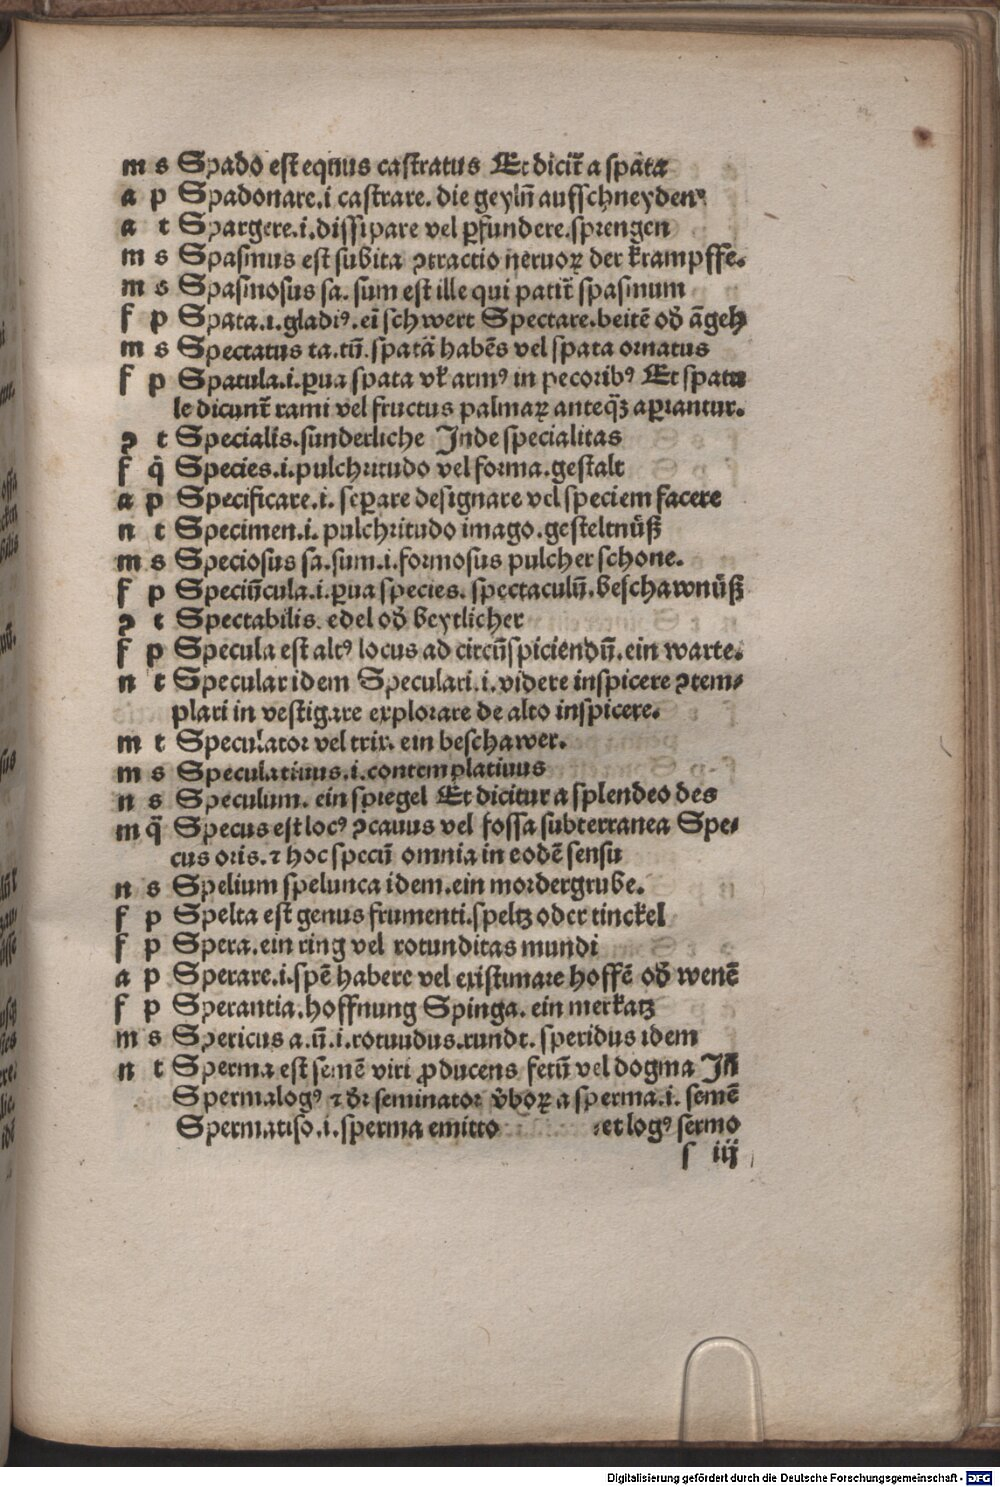 m s Spado est equus castratus Et dicit̃ a spata
a p Spadonare.i castrare. die geyln̄ aufschneyden
a t Spargere.i.dissipare vel ꝑfundere.sprengen
m s Spasmus est subita ꝯtractio neruoꝝ der krampffe.
m s Spasmosus sa. sum est ille qui patit̃ spasmum
f p Spata.i.gladiꝰ.ein̄ schwert Spectare.beitē od̕ āgeh
m s Spectatus ta.tū.spatā habēs vel spata ornatus
f p Spatula.i.ꝑua spata vl̕ armꝰ in pecoribꝰ Et spatu
le dicunt̃ rami vel fructus palmaꝝ anteq̄ꝫ aꝑiantur.
ꝯ t Specialis.sunderliche Inde specialitas
f q̄ Species.i.pulchritudo vel forma.gestalt
a p Specificare.i. seꝑare designare vel speciem facere
n t Specimen.i. pulchritudo imago.gesteltnüß
m s Speciosus sa.sum.i.formosus pulcher schone.
f p Speciūcula.i.ꝑua species. spectaculū.beschawnüß
ꝯ t Spectabilis. edel od̕ beytlicher
f p Specula est altꝰ locus ad circūspiciendū.ein warte.
n t Specular idem Speculari.i.videre inspicere ꝯtem⸗
plari in vestigare explorare de alto inspicere.
m t Speculator vel trix. ein beschawer.
m s Speculatiuus.i.contemplatiuus
n s Speculum. ein spiegel Et dicitur a splendeo des
m q̄ Specus est locꝰ ꝯcauus vel fossa subterranea Spe⸗
cus oris.⁊ hoc specū omnia in eodē sensu
n s Spelium spelunca idem.ein mordergrube.
f p Spelta est genus frumenti.speltz oder tinckel
f p Spera.ein ring vel rotunditas mundi
a p Sperare.i.spē habere vel existimare hoffē od̕ wenē
f p Sperantia.hoffnung Spinga. ein merkatz
m s Spericus a.ū.i.rotundus.rundt. speridus idem
n t Sperma est semē viri ꝓducens fetū vel dogma Iñ
Spermalogꝰ ⁊ dr̄ seminator v̕boꝝ a sperma.i. semē
Spermatiso.i.sperma emitto et logꝰ sermo
s iij
Digitalisierung gefördert durch die Deutsche Forschungsgemeinschaft - DFG